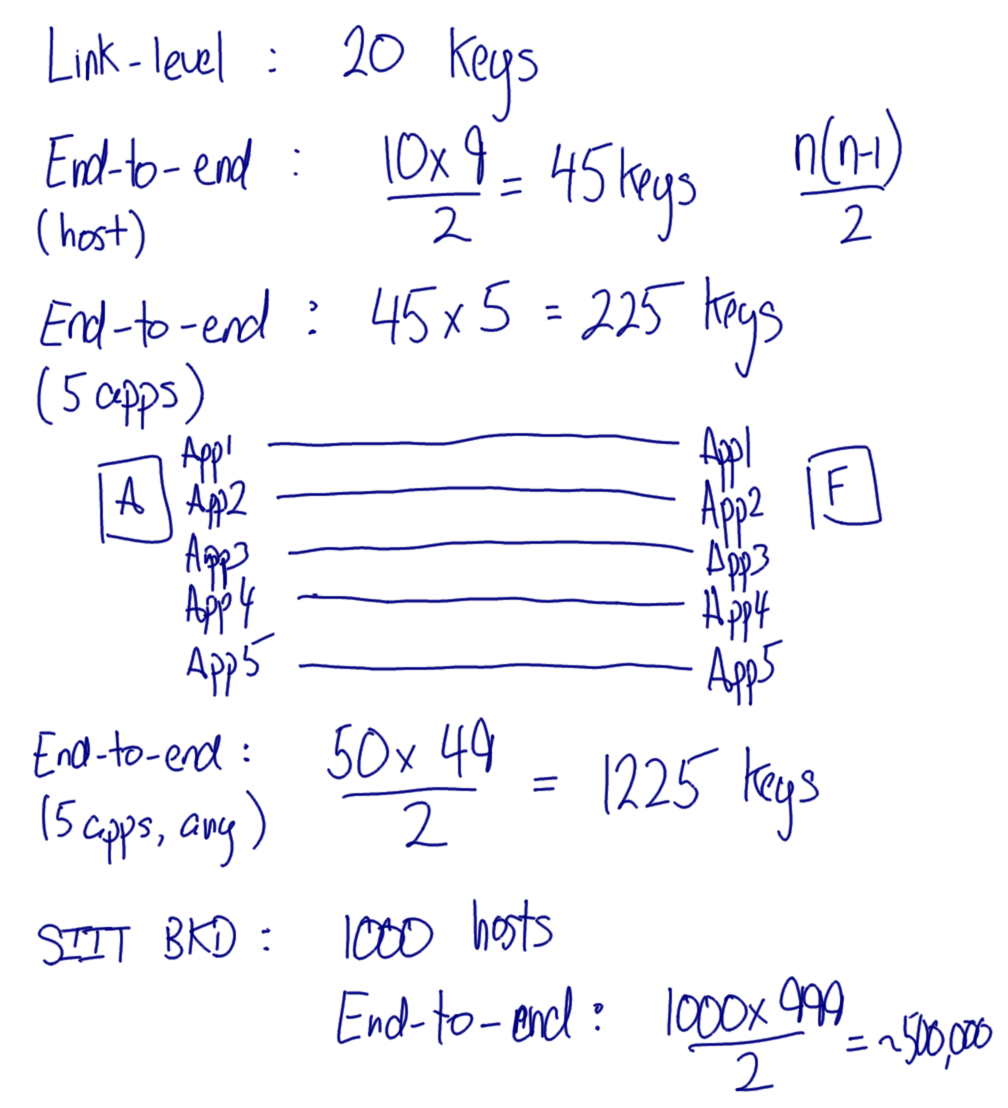 Link-level : 20 keys
End-to-end : 10x9/2 = 45 keys n(n-1)/2
(host)
End-to-end : 45 x 5 = 225 keys
(5 apps)
App1 App1
A App2 App2 F
App3 App3
App4 App4
App5 App5
End-to-end : 50 x 49/2 = 1225 keys
(5 apps, any)
SIIT BKD : 1000 hosts
End-to-end : 1000 x 999/2 = ~500,000